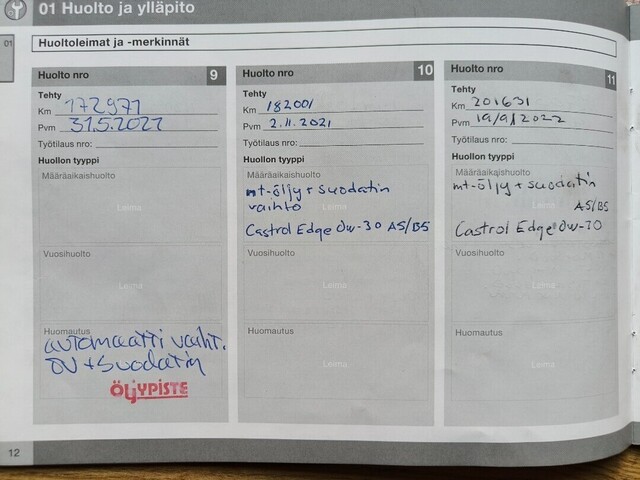 01 Huolto ja ylläpito
01
Huoltoleimat ja -merkinnät
Huolto nro 9
Tehty
Km 172971
Pvm 31.5.2021
Työtilaus nro:
Huollon tyyppi
Määräaikaishuolto
Leima
Vuosihuolto
Leima
Huomautus
automaatti vaiht.
öv + suodatin
ÖLJYPISTE
Huolto nro 10
Tehty
Km 182001
Pvm 2.11.2021
Työtilaus nro:
Huollon tyyppi
Määräaikaishuolto
mt-öljy + suodatin
vaihto
Leima
Castrol Edge 0w-30 A5/B5
Vuosihuolto
Leima
Huomautus
Leima
Huolto nro 11
Tehty
Km 201631
Pvm 19/9/2022
Työtilaus nro:
Huollon tyyppi
Määräaikaishuolto
mt-öljy + suodatin
A5/B5
Castrol Edge 0w-30
Vuosihuolto
Leima
Huomautus
Leima
12